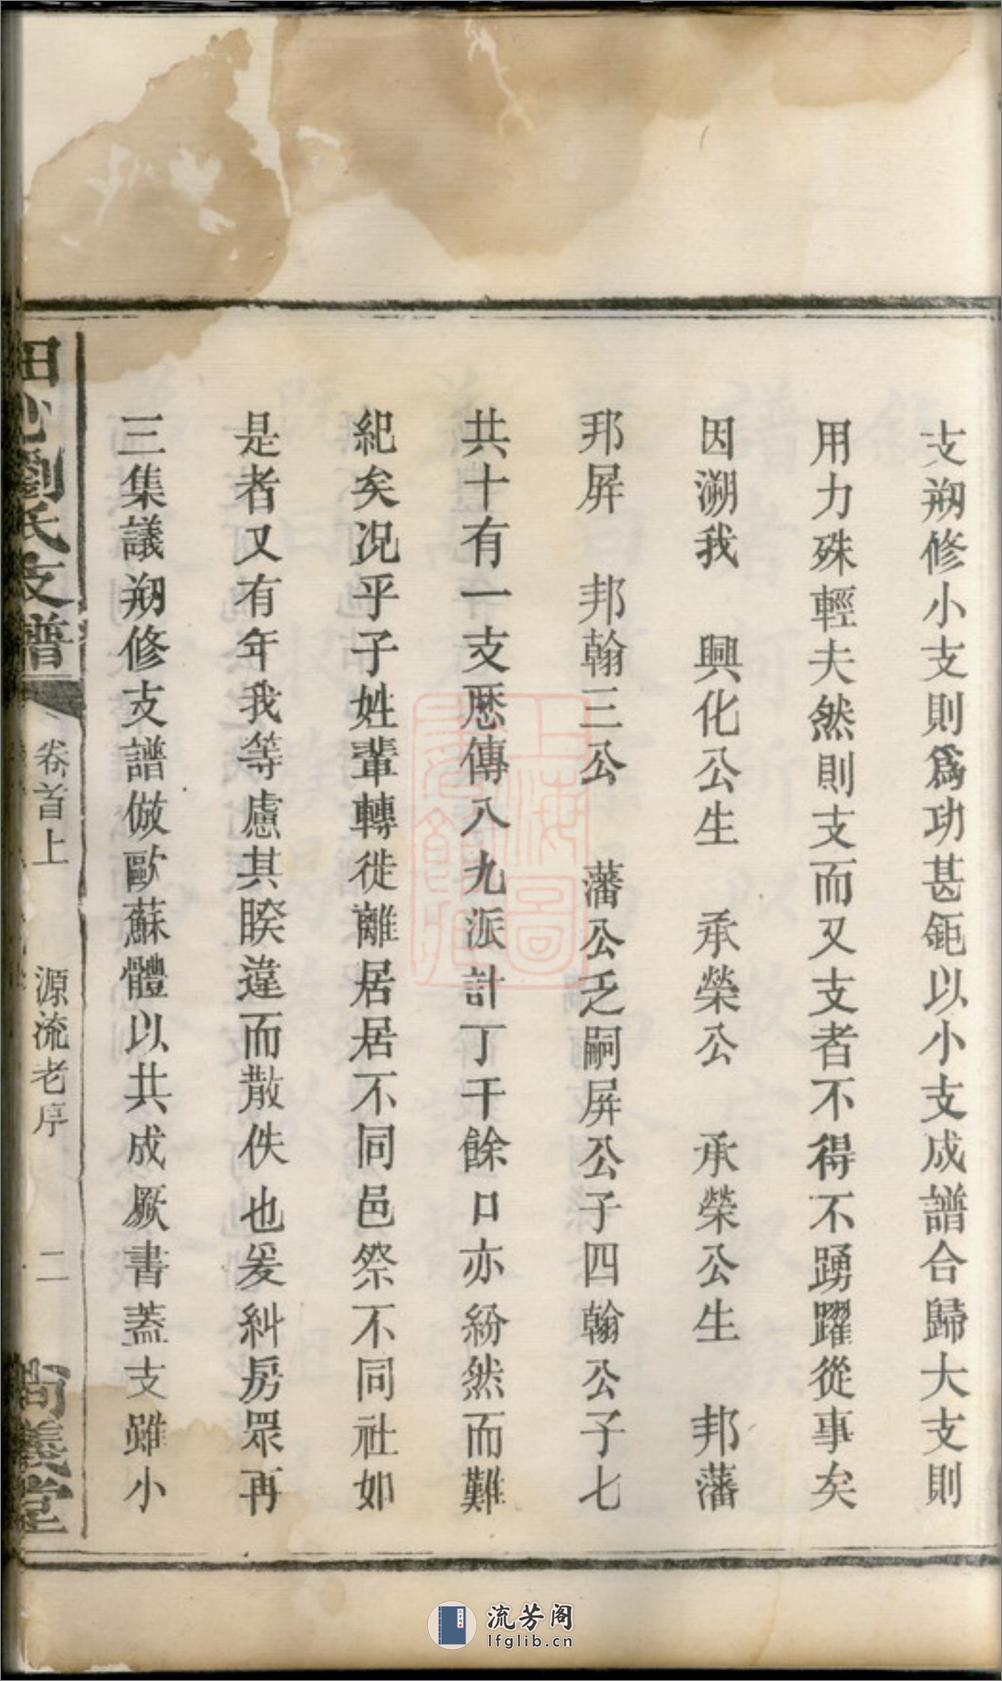 支剏修小支則爲功甚鉅以小支成譜合歸大支則
用力殊輕夫然則支而又支者不得不踴躍從事矣
因溯我　興化公生　承榮公　承榮公生　邦藩
邦屏　邦翰三公　藩公乏嗣屏公子四翰公子七
共十有一支厯傳八九派計丁千餘口亦紛然而難
紀矣况乎子姓輩轉徙離居居不同邑祭不同社如
是者又有年我等慮其睽違而散佚也爰糾房眾再
三集議剏修支譜倣歐蘇體以共成厥書蓋支雖小
田心劉氏支譜
卷首上
源流老序
二
尚義堂
上海圖
書館藏
流芳阁
lfglib.cn